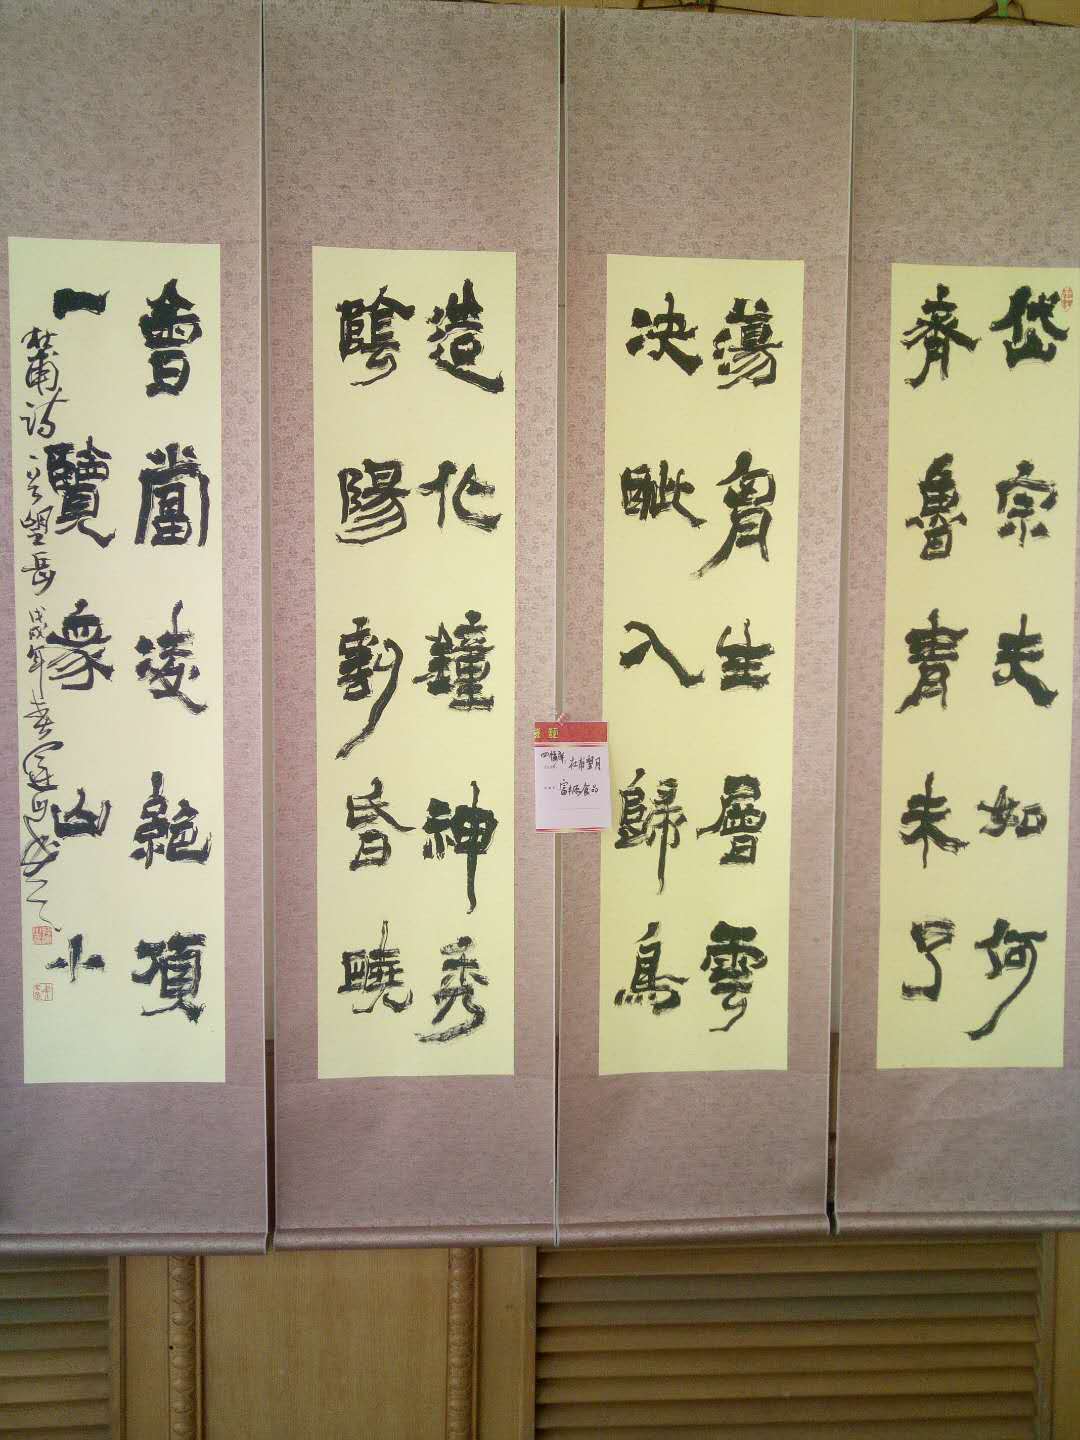 岱宗夫如何
齊魯青未了
蕩胷生層雲
決眦入歸鳥
造化鐘神秀
陰陽割昏曉
會當凌絕頂
一覽衆山小
杜甫詩一首望岳 戊戌年春
四條屏
杜甫望月
食品